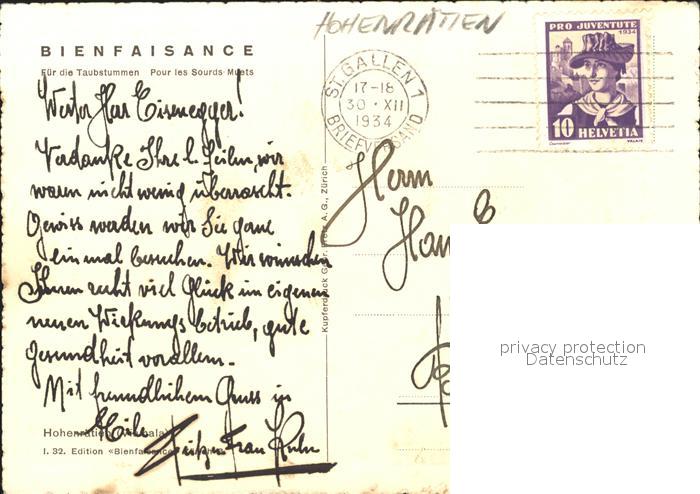 HOHENRÄTIEN
BIENFAISANCE
Für die Taubstummen Pour les Sourds-Muets
Werter Herr Eisenegger!
Verdanke Ihre l. Zeilen, wir
waren nicht wenig überrascht.
Gewiss werden wir Sie gerne
einmal besuchen. Wir wünschen
Ihnen recht viel Glück im eigenen
neuen Wirkungsbetrieb, gute
Gesundheit vorallem.
Mit freundlichem Gruss in
Eile
Frau
Hohenrätien
I. 32. Edition «Bienfaisance»
Kupferdruck A. G., Zürich
ST. GALLEN 1
17-18
30·XII
1934
BRIEFVERSAND
PRO JUVENTUTE
1934
10 HELVETIA
VALAIS
Herrn
privacy protection
Datenschutz